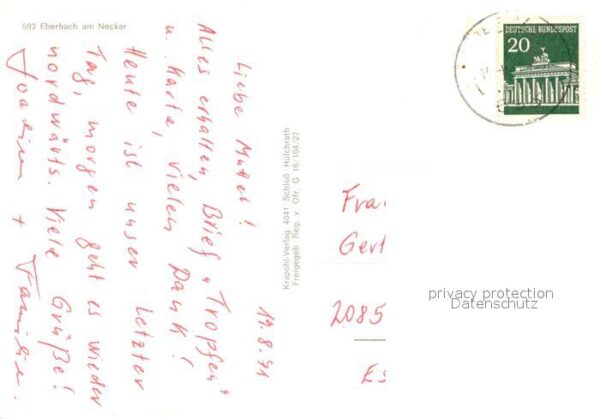 693 Eberbach am Neckar
19.8.71
Liebe Mutel!
Alles erhalten, Brief "Tropfen"
u. Karte, vielen Dank!
Heute ist unser letzter
Tag, morgen geht es wieder
nordwärts. Viele Grüße!
Joachim + Familie.
Krapohl-Verlag 4041 Schloß Hülchrath
Freigegeb. Reg. v. Ofr. G 16/104/27
DEUTSCHE BUNDESPOST
20
Fra
Gert
2085
Es
privacy protection
Datenschutz